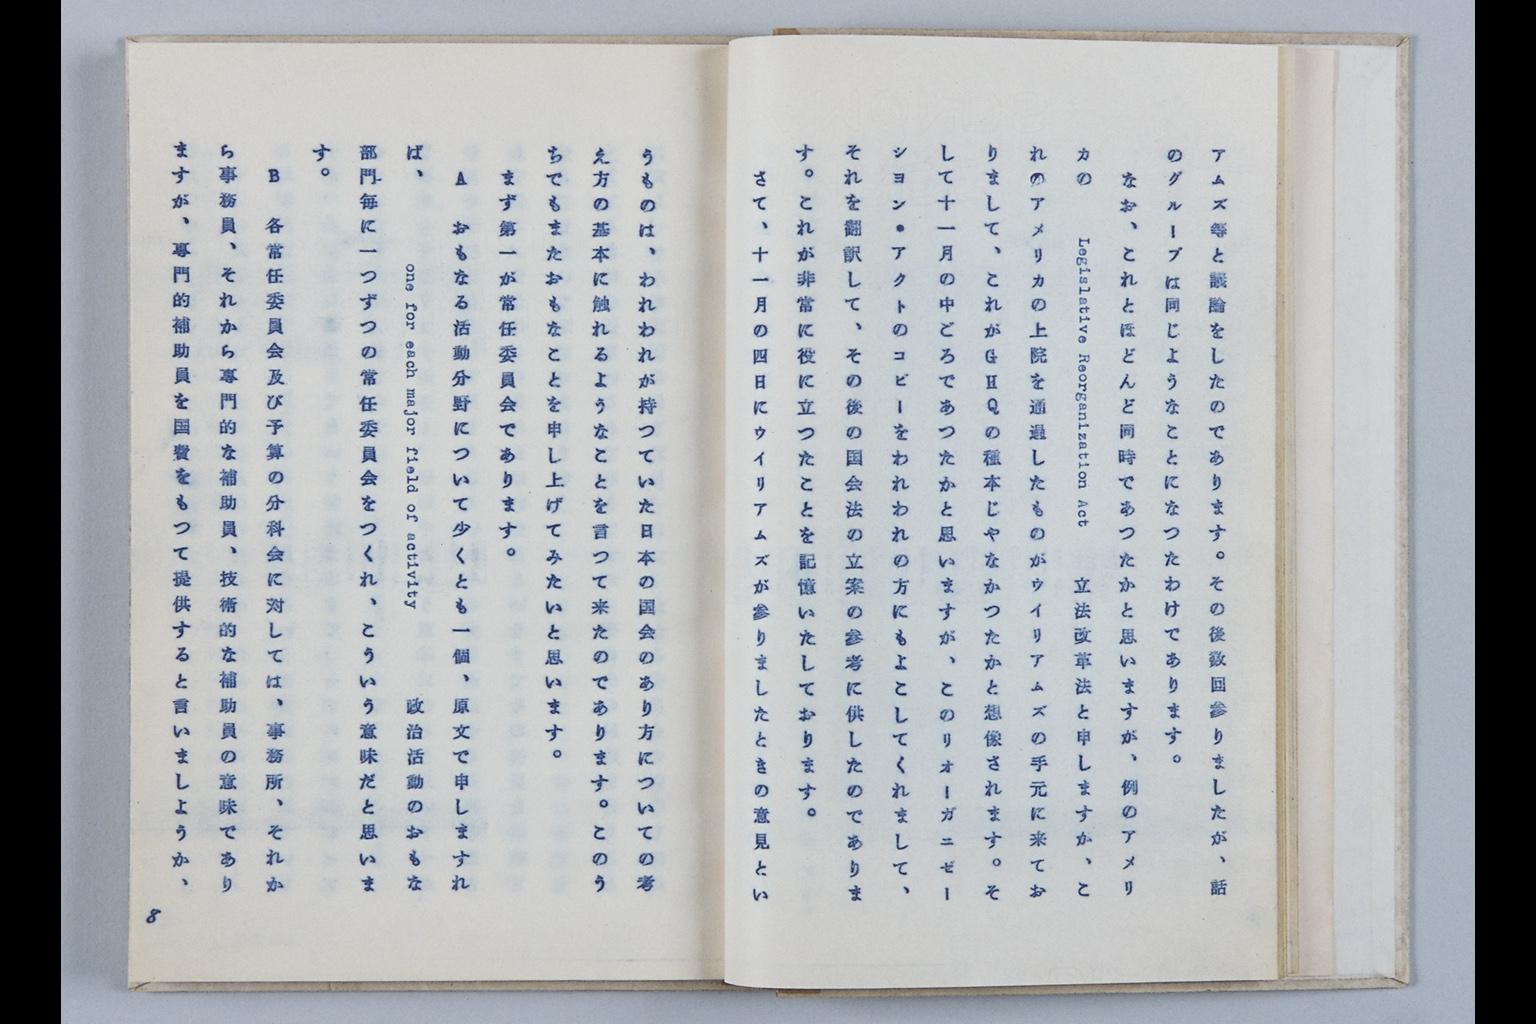 アムズ等と議論をしたのであります。その後数回参りましたが、話
のグループは同じようなことになつたわけであります。
なお、これとほどんど同時であつたかと思いますが、例のアメリ
カの Legislative Reorganization Act 立法改革法と申しますか、こ
れのアメリカの上院を通過したものがウイリアムズの手元に来てお
りまして、これがGHQの種本じやなかつたかと想像されます。そ
して十一月の中ごろであつたかと思いますが、このリオーガニゼー
シヨン・アクトのコピーをわれわれの方にもよこしてくれまして、
それを翻訳して、その後の国会法の立案の参考に供したのでありま
す。これが非常に役に立つたことを記憶いたしております。
さて、十一月の四日にウイリアムズが参りましたときの意見とい
うものは、われわれが持つていた日本の国会のあり方についての考
え方の基本に触れるようなことを言つて来たのであります。このう
ちでもまたおもなことを申し上げてみたいと思います。
まず第一が常任委員会であります。
A おもなる活動分野について少くとも一個、原文で申しますれ
ば、 one for each major field of activity 政治活動のおもな
部門毎に一つずつの常任委員会をつくれ、こういう意味だと思いま
す。
B 各常任委員会及び予算の分科会に対しては、事務所、それか
ら事務員、それから専門的な補助員、技術的な補助員の意味であり
ますが、専門的補助員を国費をもつて提供すると言いましようか、
8